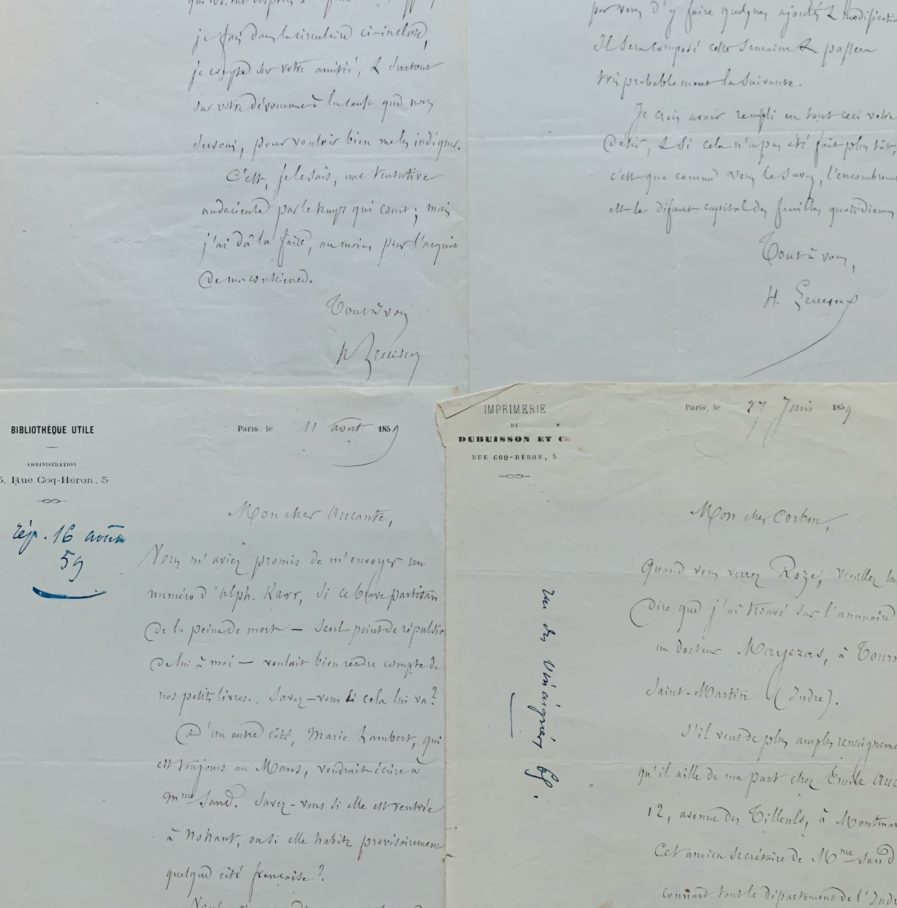 je fais dans la circulaire ci-incluse,
je compte sur votre amitié, & surtout
sur votre dévouement à la cause que nous
servons, pour vouloir bien me les indiquer.
C'est, je le sais, une tentative
audacieuse par le temps qui court; mais
j'ai dû la faire, au moins pour l'acquit
de ma conscience.
Tout à vous
par vous d'y faire quelques ajoutés & modifications
Il sera composé cette semaine & passera
très probablement la suivante.
Je crois avoir rempli en tout ceci votre
désir, & si cela n'a pas été fait plus tôt,
c'est que comme vous le savez, l'encombrement
est le défaut capital des feuilles quotidiennes
Tout à vous,
H.
BIBLIOTHÈQUE UTILE
ADMINISTRATION
5, Rue Coq-Héron, 5
Paris, le 11 août 1859
rép. 16 août
59
Mon cher Aucante,
Vous m'aviez promis de m'envoyer un
numéro d'Alph. Karr, si ce brave partisan
de la peine de mort — seul point de répulsion
de lui à moi — voulait bien rendre compte de
nos petits livres. Savez-vous si cela lui va?
D'un autre côté, Marie Lambert, qui
est toujours au Mans, voudrait écrire à
Mme Sand. Savez-vous si elle est rentrée
à Nohant, ou si elle habite provisoirement
quelque cité française?
IMPRIMERIE
DE
DUBUISSON ET C
RUE COQ-HÉRON, 5
Paris, le 27 Juin 1859
Mon cher Corbon,
rue des Vinaigriers 68.
Quand vous verrez Roze, veuillez lui
dire que j'ai trouvé sur l'annuaire
un docteur Mayeras, à Tourn
Saint-Martin (Indre).
S'il veut de plus amples renseignemen
qu'il aille de ma part chez Emile Auc
12, avenue des Tilleuls, à Montmar
Cet ancien secrétaire de Mme Sand
connaît tout le département de l'Indr